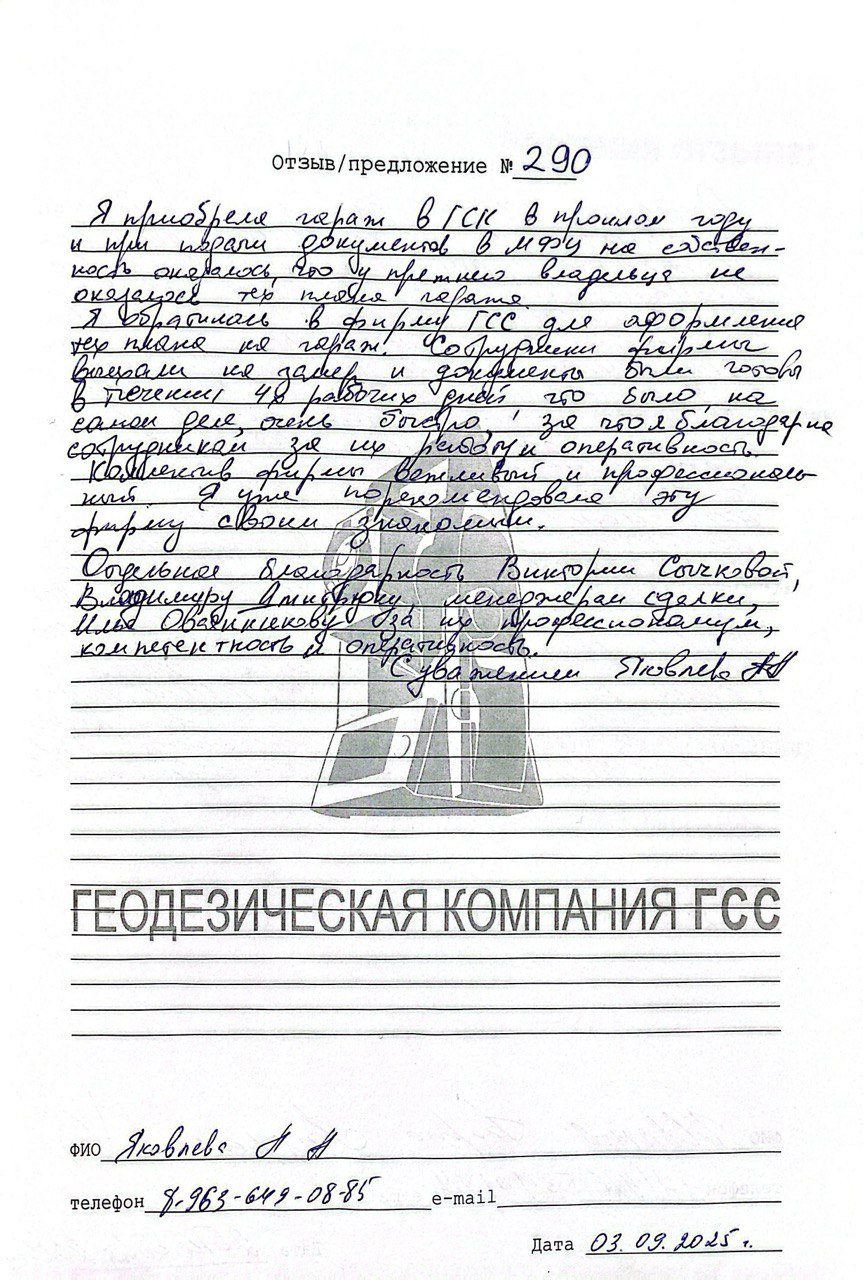 Отзыв/предложение № 290
Я приобрела гараж в ГСК в прошлом году
и при подачи документов в МФЦ на собствен-
ность оказалось, что у прежнего владельца не
оказалось тех плана гаража.
Я обратилась в фирму ГСС для оформления
тех плана на гараж. Сотрудники фирмы
выехали на замер и документы были готовы
в течении 4х рабочих дней что было на
самом деле, очень быстро, за что я благодарна
сотрудникам за их работу и оперативность.
Коллектив фирмы вежливый и профессиональ-
ный. Я уже порекомендовала эту
фирму своим знакомым.
Отдельная благодарность Виктории Сычковой,
Владимиру Дмитрюку, менеджерам сделки,
Илье Овсянникову за их профессионализм,
компетентность и оперативность.
С уважением Яковлева АН
ГЕОДЕЗИЧЕСКАЯ КОМПАНИЯ ГСС
ФИО Яковлева А Н
телефон 8-963-649-08-85 e-mail
Дата 03.09.2025 г.